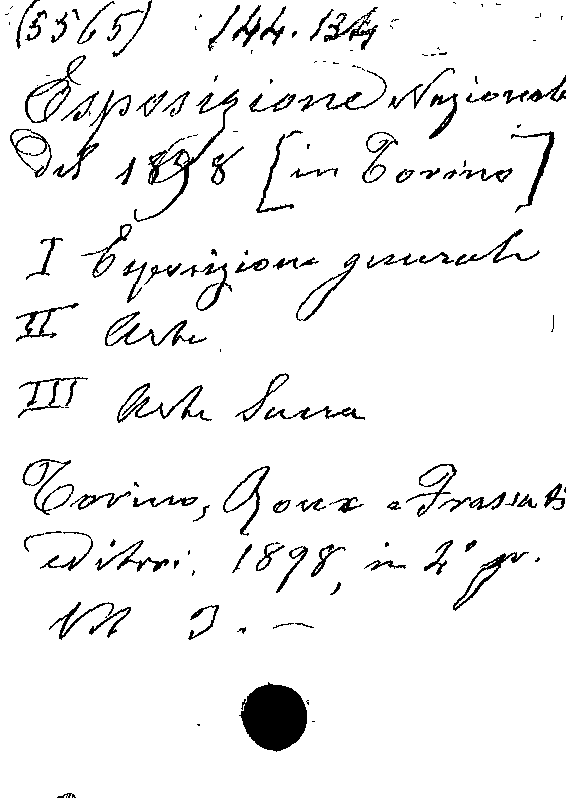 (5565) 144.134
Esposizione Nazionale
del 1898 [in Torino]
I Esposizione generale
II Arte
III Arte Sacra
Torino, Roux e Frassati
editori. 1898, in 2° gr.